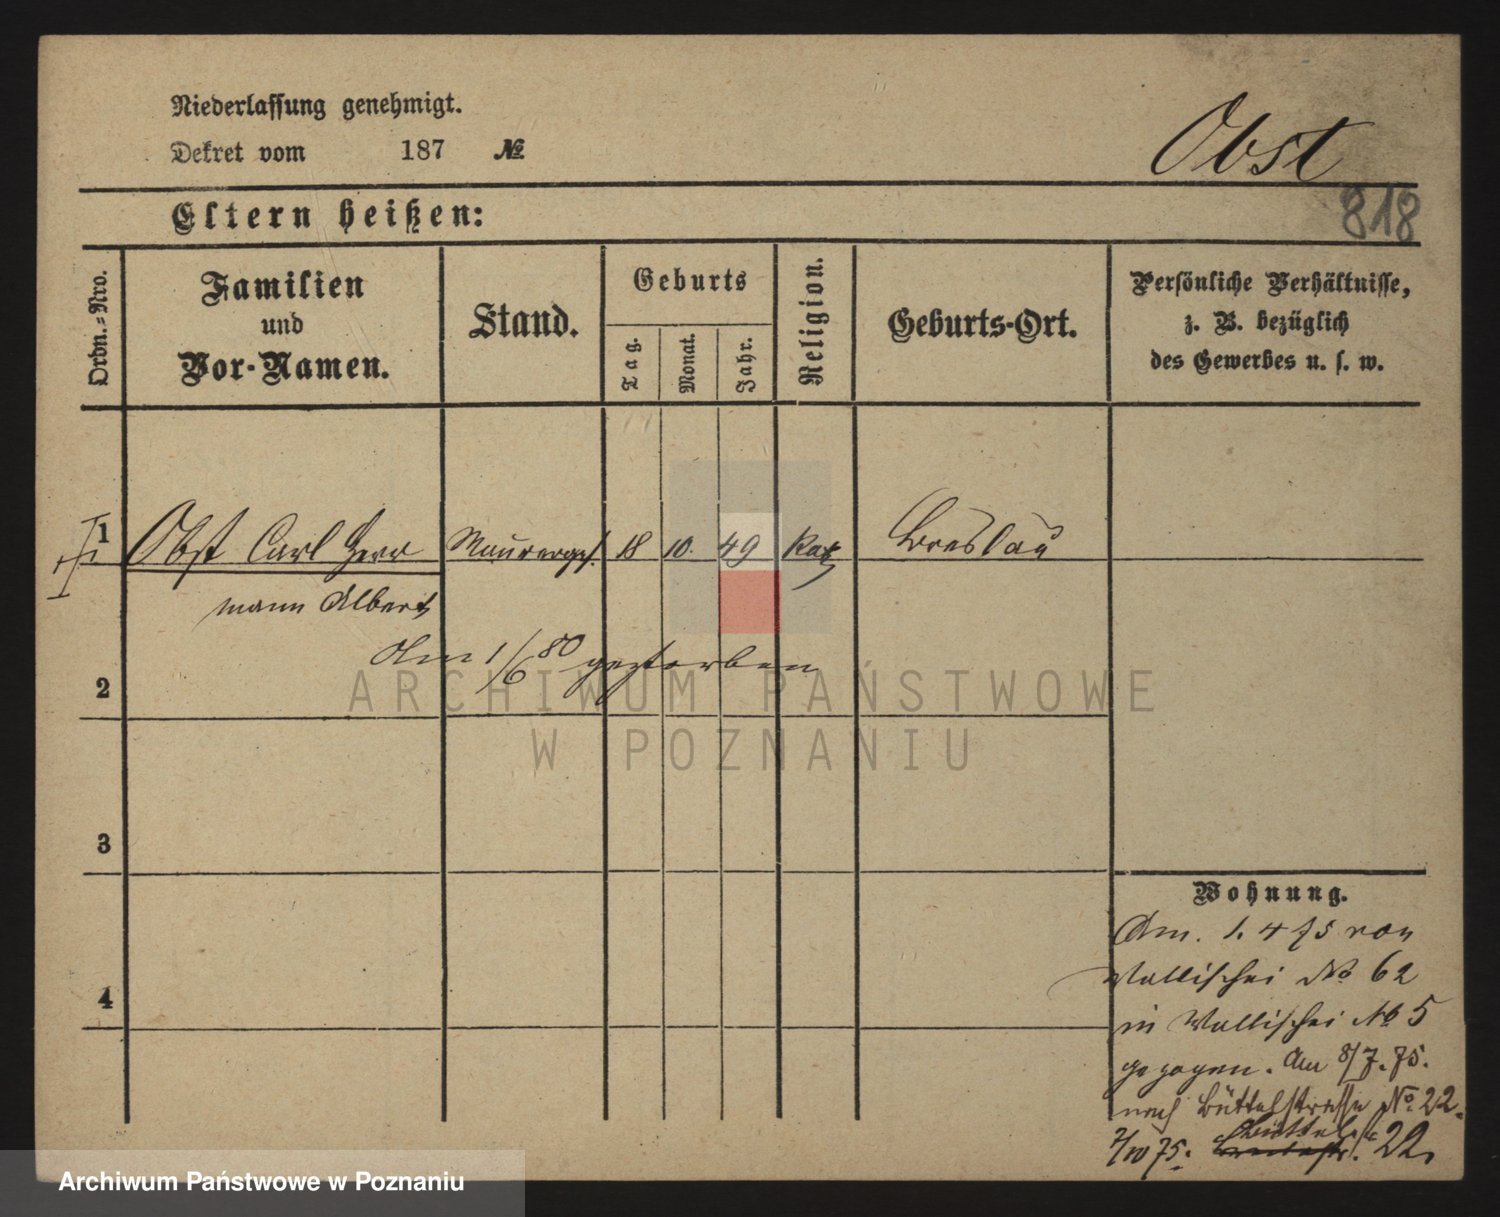 Niederlassung genehmigt.
Dekret vom 187 №
Obst
818
Eltern heißen:
Ordn.-Nro.
Familien
und
Vor-Namen.
Stand.
Geburts
Tag.
Monat.
Jahr.
Religion.
Geburts-Ort.
Persönliche Verhältnisse,
z. B. bezüglich
des Gewerbes u. s. w.
1 Obst Carl Herr Maurerges. 18 10. 49 Kat Breslau
mann Albert
Am 1/6 80 gestorben
2
ARCHIWUM PAŃSTWOWE
W POZNANIU
3
4
Wohnung.
Am. 1. 4 75 von
Wallischei No 62
in Wallischei No 5
gezogen. Am 8/7. 75.
nach Büttelstrasse No. 22.
7/10 75. Büttelstr. 22.
Archiwum Państwowe w Poznaniu